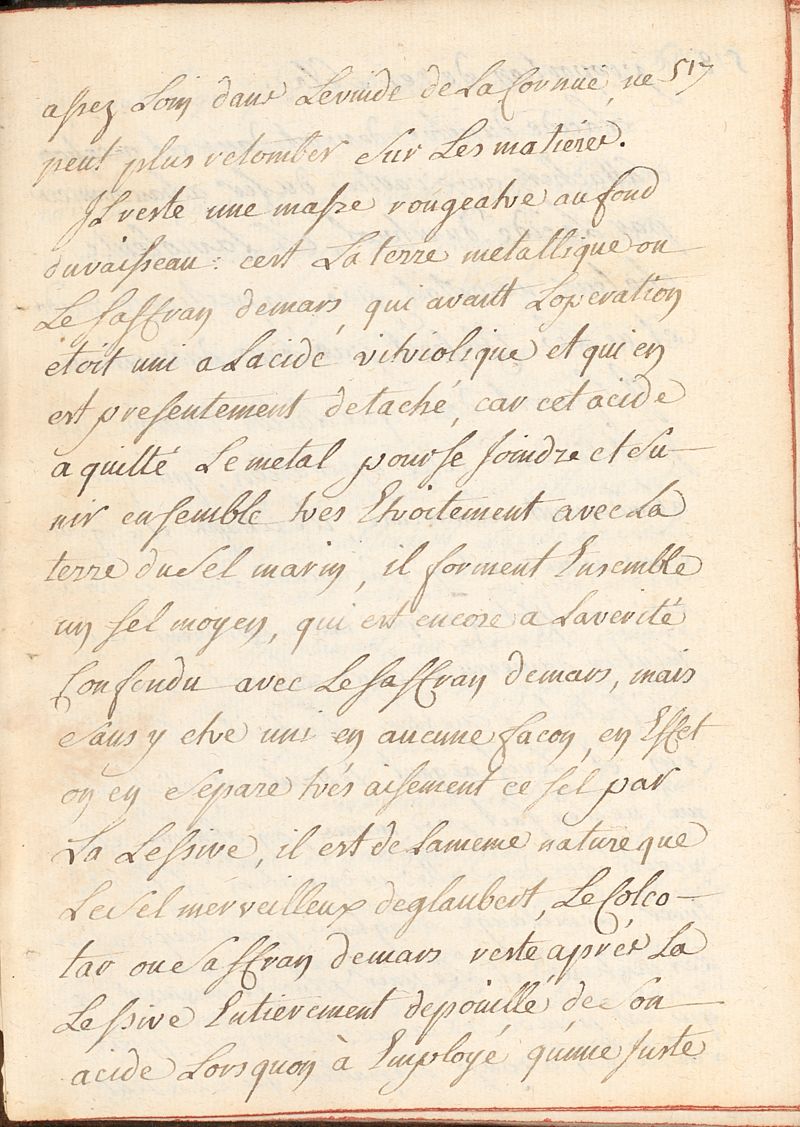 517
assez Loin dans Levuide de La Cornüe, ne
peut plus retomber Sur Les matieres.
JL reste une masse rougeatre au fond
du vaisseau : cest La terre metallique ou
Le Saffran de mars, qui avant Loperation
etoit uni a Lacide vitriolique et qui en
est presentement detaché, car cet acide
a quitté Le metal pour se Joindre et Su-
nir ensemble tres Etroitement avec La
terre du Sel marin, il forment Ensemble
un sel moyen, qui est encore a Laverité
Confondu avec Le Saffran de mars, mais
Sans y etre uni en aucune facon, en Effet
on en Separe trés aisement ce sel par
La Lessive, il est de Lameme nature que
Le Sel merveilleux de glaubert, Le Colco-
tar ou Saffran de mars reste aprés La
Lessive Entierement depoüillé de Son
acide Lorsquon à Employé qu'une Juste